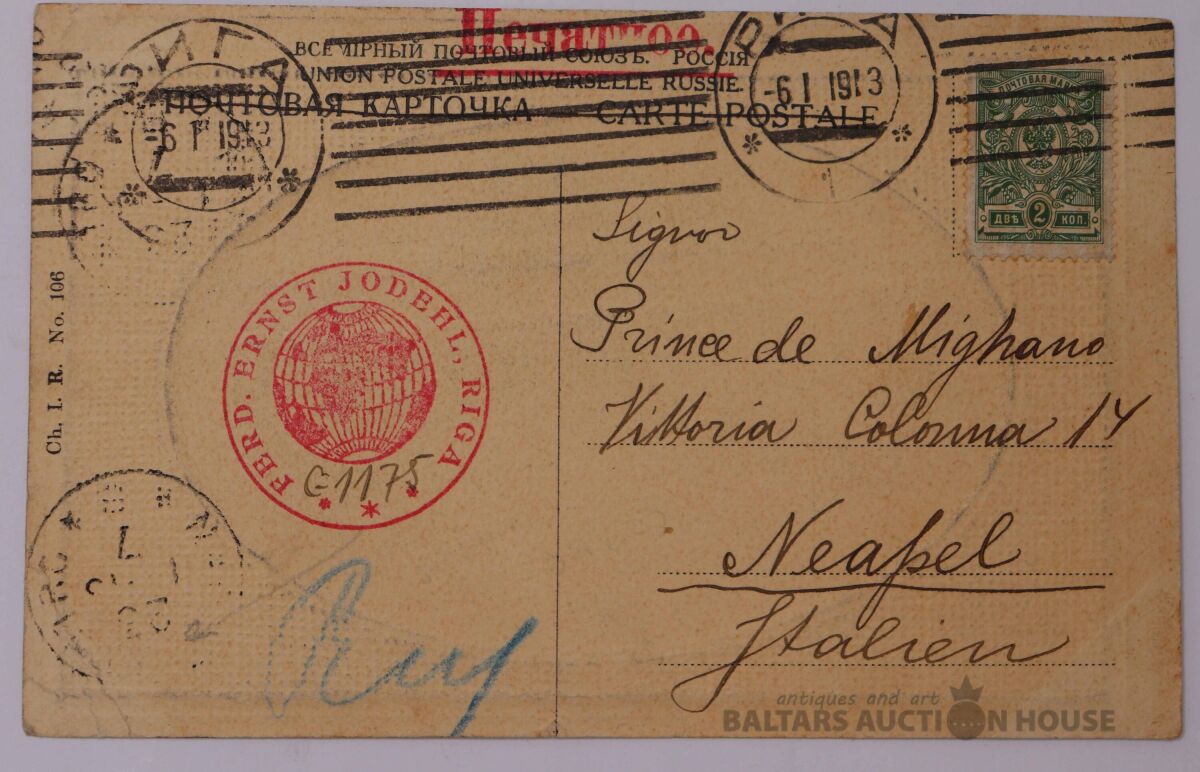 Печатное.
ВСЕМІРНЫЙ ПОЧТОВЫЙ СОЮЗЪ. РОССІЯ
UNION POSTALE UNIVERSELLE RUSSIE.
ПОЧТОВАЯ КАРТОЧКА CARTE POSTALE
РИГА
-6 1 1913
РИГА
-6 1 1913
ПОЧТОВАЯ МАРКА
ДВѢ 2 КОП.
Signor
Prince de Mighano
Vittoria Colonna 14
Neapel
Italien
Ch. I. R. No. 106
FERD. ERNST JODEHL, RIGA
G 1175
antiques and art
BALTARS AUCTION HOUSE